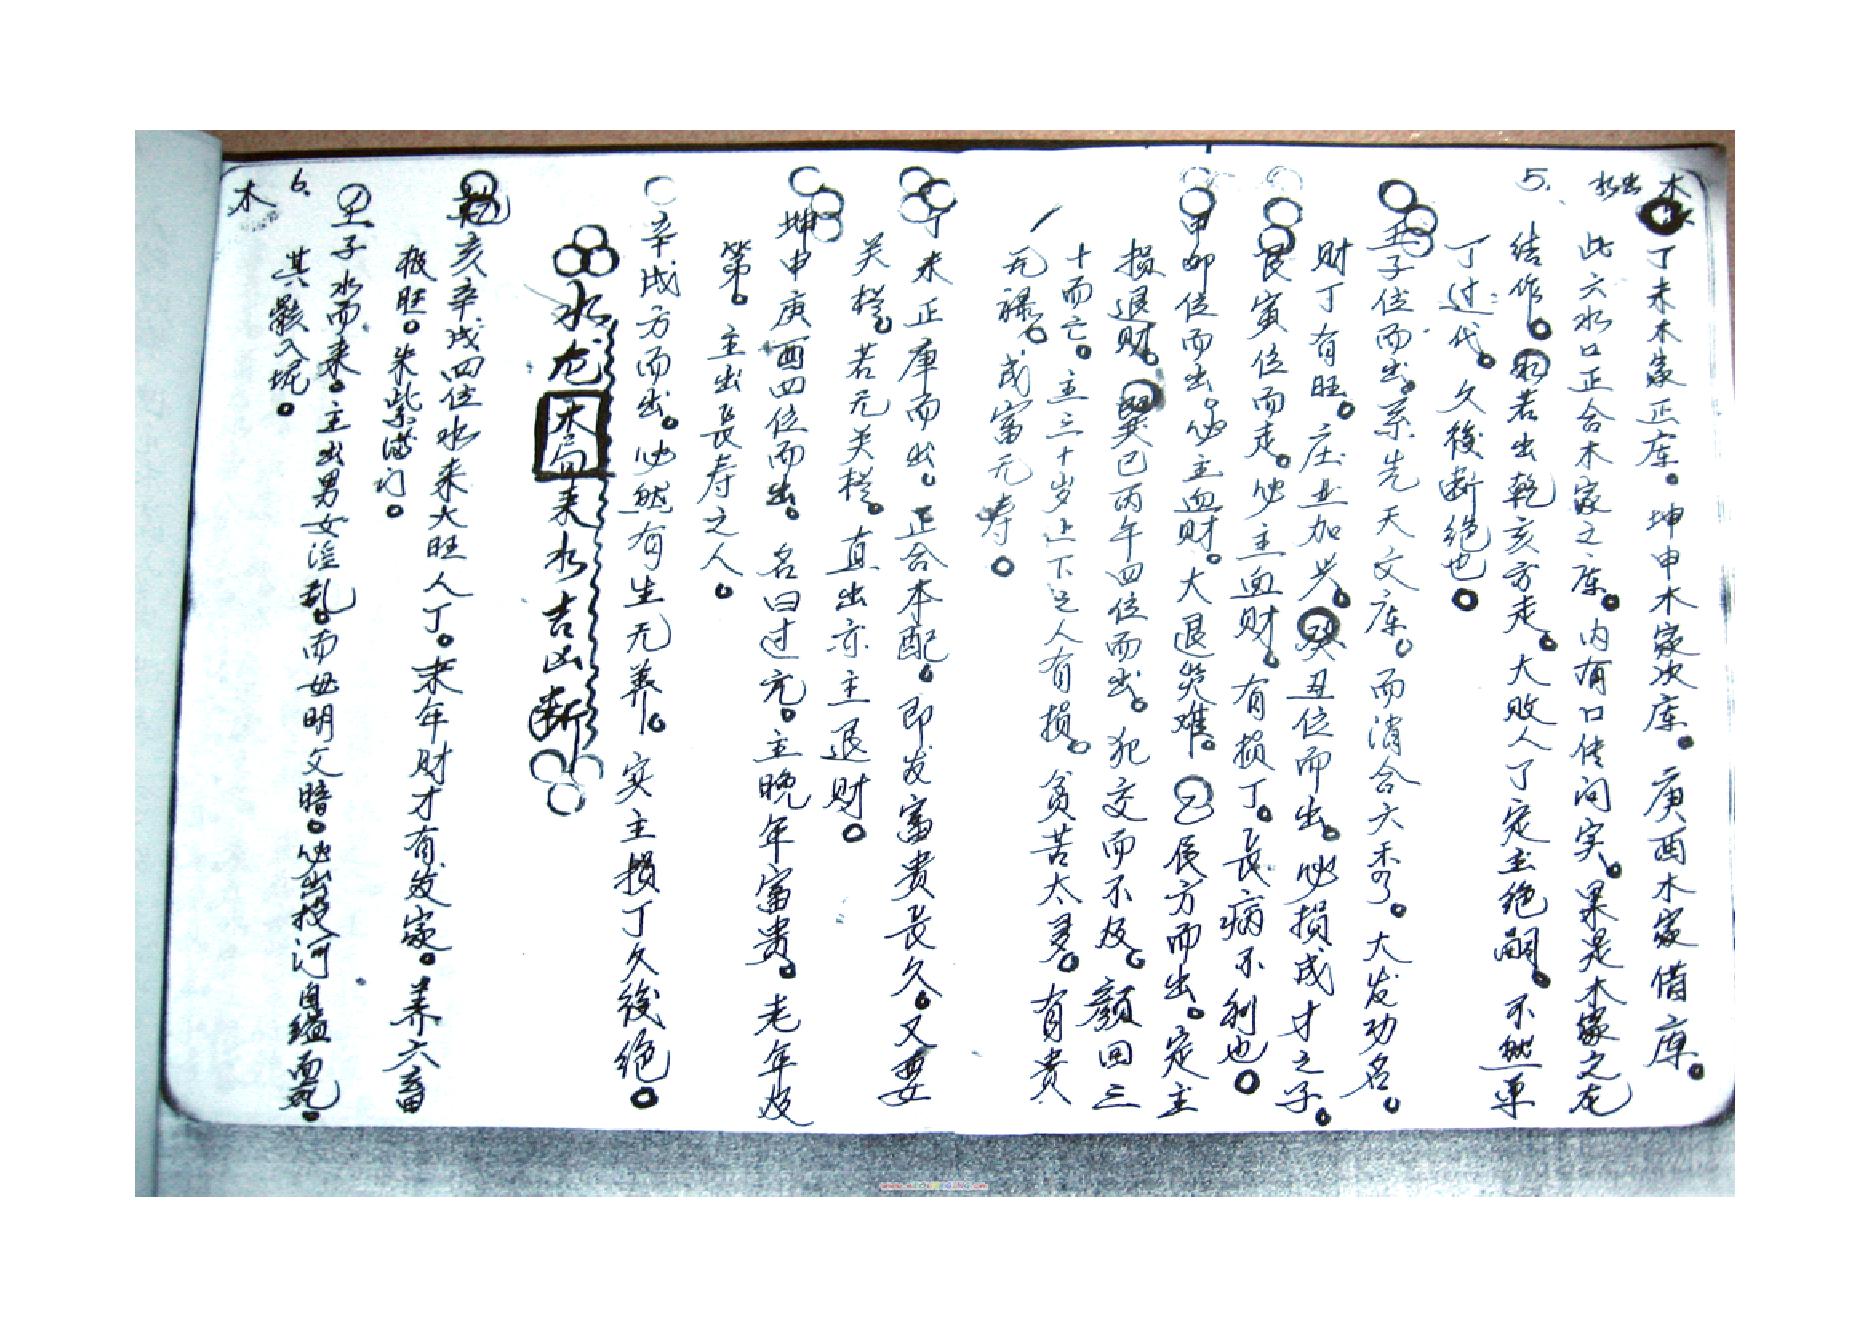 木
水出
丁未木家正库。坤申木家次库。庚酉木家借库。
此六水口正合木家之库。内有口传问实。果是木家之龙
5.
结作。若出乾亥方走。大败人丁定主绝嗣。不然单
丁过代。久後断绝也。
壬子位而出。系先天文库。而消合六秀。大发功名。
财丁有旺。庄业加兴。癸丑位而出。必损成才之子。
艮寅位而走。必主血财。有损丁。長病不利也。
甲卯位而出。必主血财。大退災难。乙辰方而出。定主
损退财。巽巳丙午四位而出。犯交而不及。颜回三
十而亡。主三十岁上下之人有损。贫苦太多。有貴
无禄。或富无寿。
丁未正库而出。正合本配。即发富貴長久。又要
关栏。若无关栏。直出亦主退财。
坤申庚酉四位而出。名曰过亢。主晚年富貴。老年及
第。主出長寿之人。
辛戌方而出。必然有生无养。实主损丁久後绝。
水龙木局来水吉凶断
乾亥辛戌四位水来大旺人丁。末年财才有发家。养六畜
极旺。朱紫满门。
壬子水而来。主出男女淫乱。而母明父暗。必出投河自缢而死。
6.
其骸入坭。
木